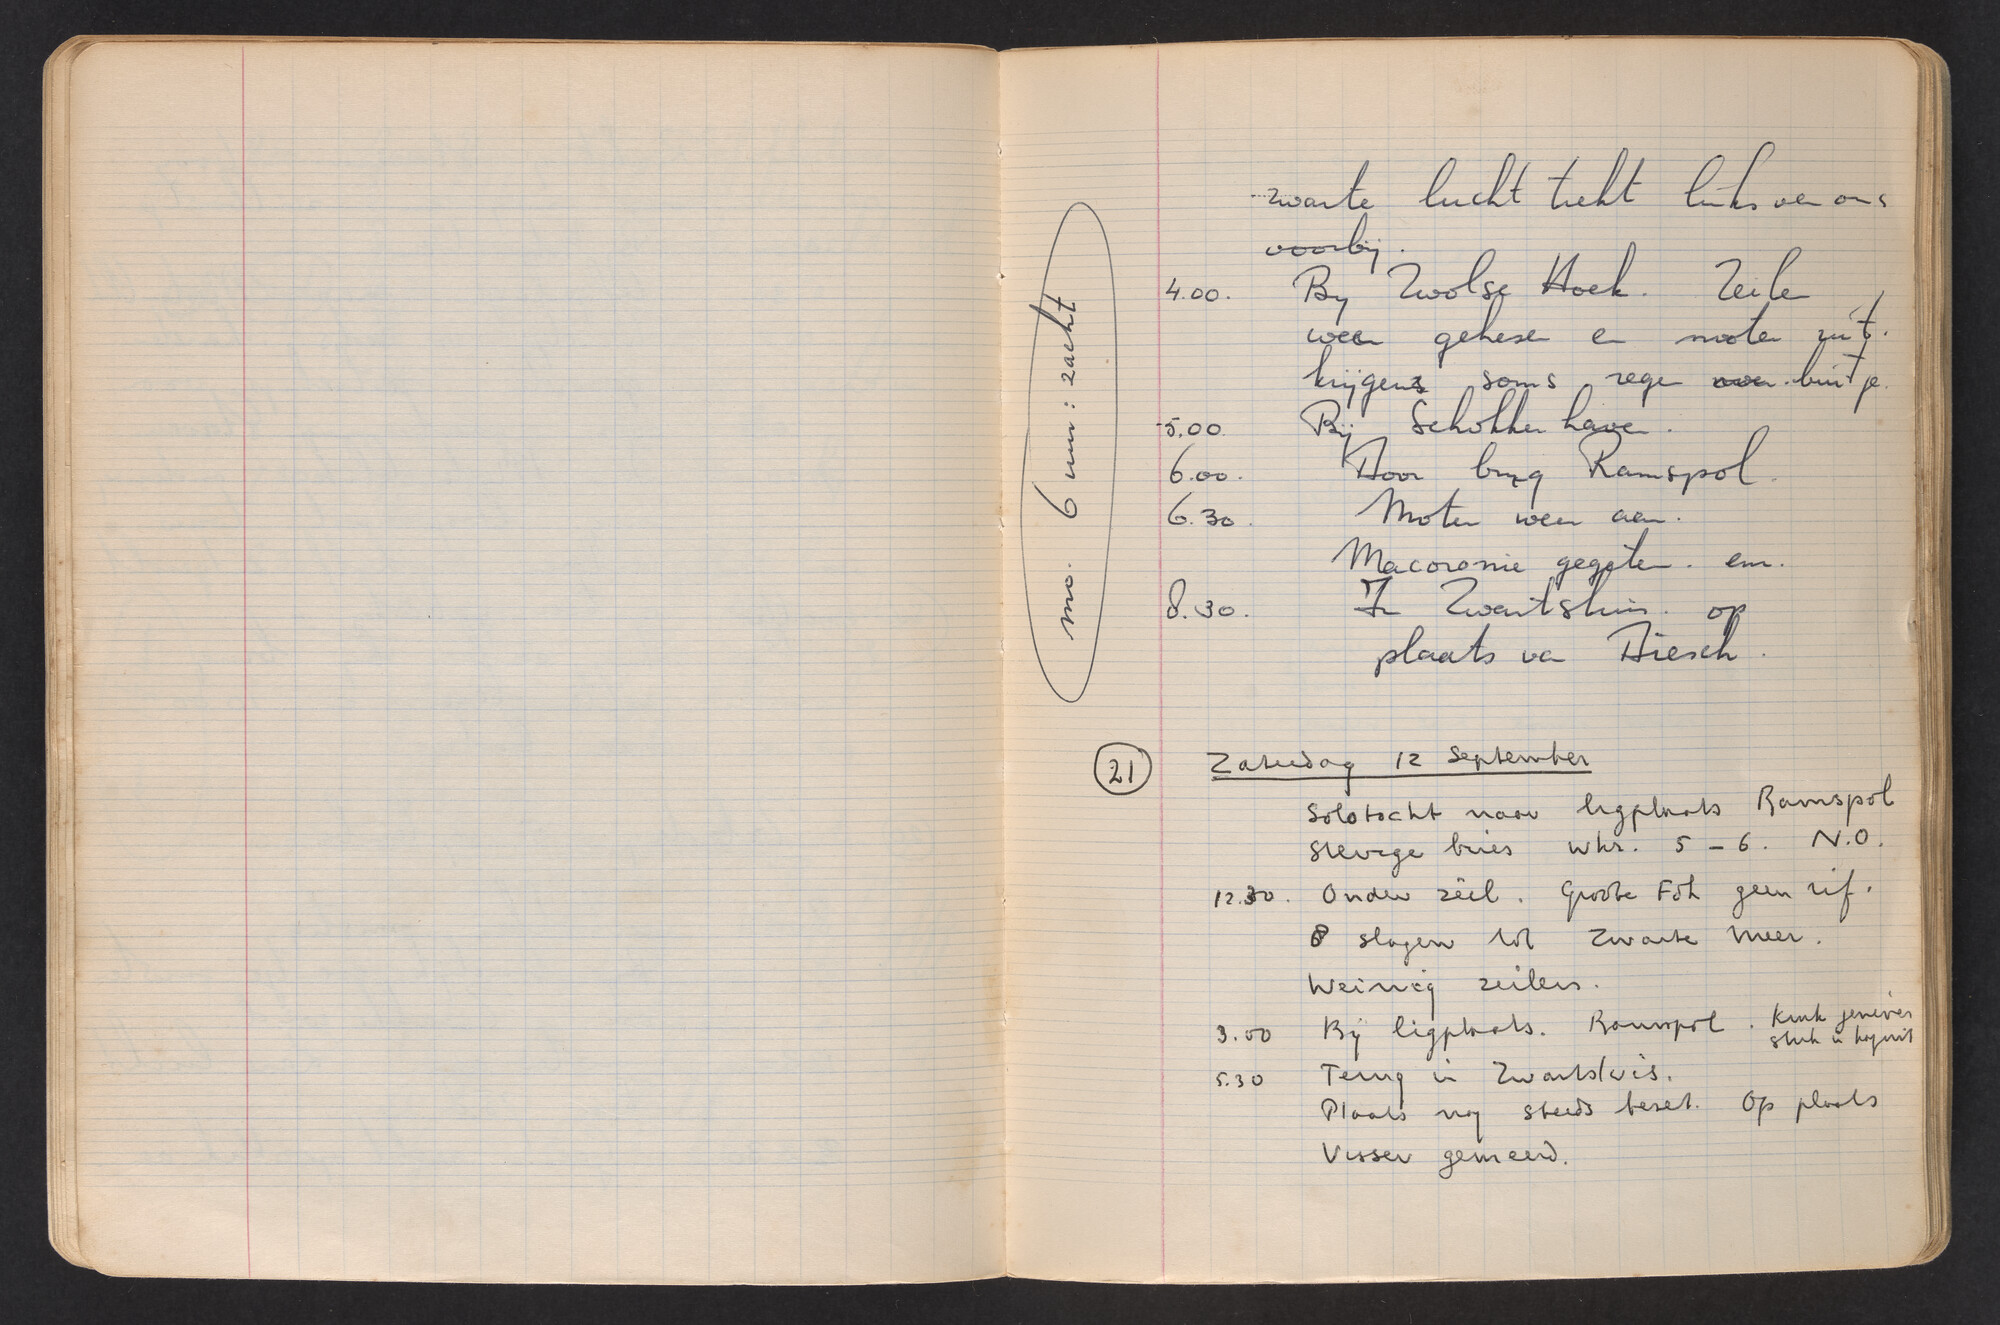 zwarte lucht trekt links van ons
voorbij.
4.00. By Zwolse Hoek. Zeilen
weer gehesen en moter uit.
krijgen soms regen buitje.
5.00 Bij Schokkerhaven.
6.00. Door brug Ramspol.
6.30. Moter weer aan.
Macoronie gegeten. en.
8.30. In Zwartsluis. op
plaats van Diesch.
mo. 6 uur: zacht
21 Zaterdag 12 September
Solotocht naar ligplaats Ramspol
Stevige bries wkr. 5 - 6. N.O.
12.30. Onder zeil. Grote Fok geen rif.
8 slagen tot Zwarte Meer.
Weinig zeilers.
3.00 Bij ligplaats. Ramspol. Kruik jenever
stuk in kajuit
5.30 Terug in Zwartsluis.
Plaats nog steeds bezet. Op plaats
Visser gemeerd.